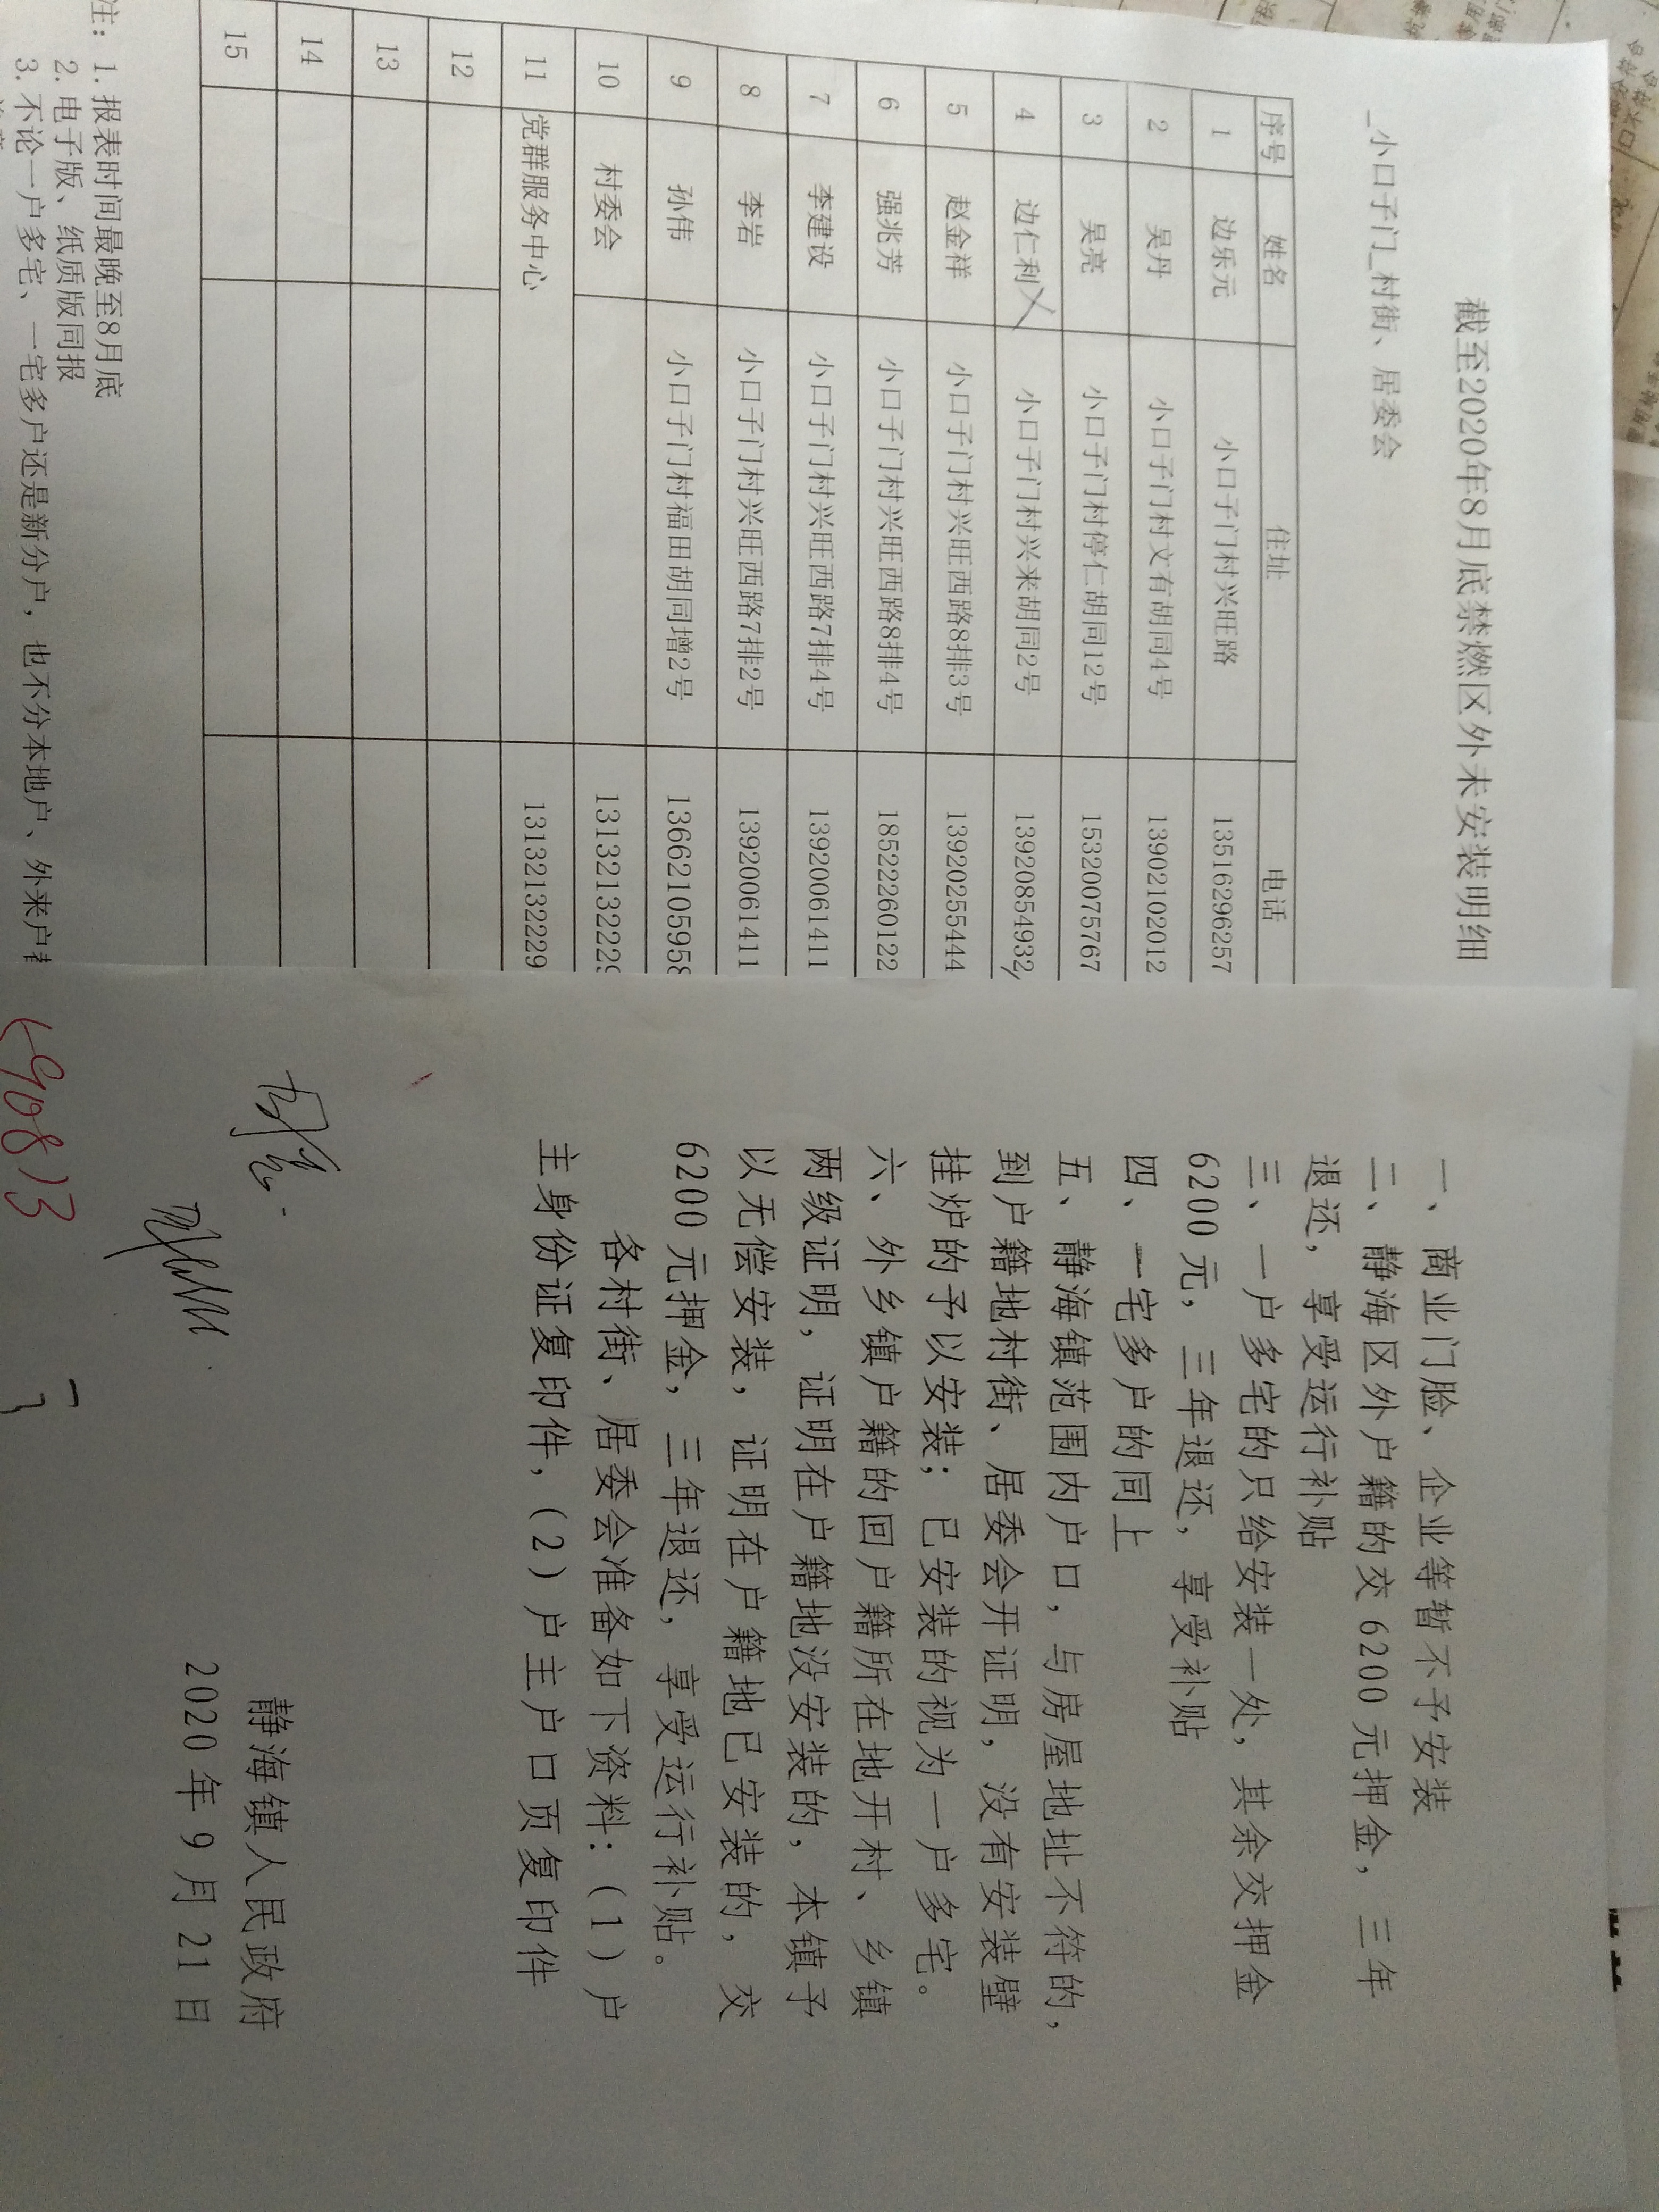 截至2020年8月底禁燃区外未安装明细
_小口子门_村街、居委会
序号 姓名 住址 电话
1 边乐元 小口子门村兴旺路 13516296257
2 吴丹 小口子门村文有胡同4号 13902102012
3 吴亮 小口子门村停仁胡同12号 15320075767
4 边仁利 小口子门村兴来胡同2号 13920854932
5 赵金祥 小口子门村兴旺西路8排3号 13920255444
6 强兆芳 小口子门村兴旺西路8排4号 18522260122
7 李建设 小口子门村兴旺西路7排4号 13920061411
8 李岩 小口子门村兴旺西路7排2号 13920061411
9 孙伟 小口子门村福田胡同增2号 13662105958
10 村委会 13132132229
11 党群服务中心 13132132229
12
13
14
15
注：1.报表时间最晚至8月底
2.电子版、纸质版同报
3.不论一户多宅、一宅多户还是新分户，也不分本地户、外来户
一、商业门脸、企业等暂不予安装
二、静海区外户籍的交 6200 元押金，三年
退还，享受运行补贴
三、一户多宅的只给安装一处，其余交押金
6200 元，三年退还，享受补贴
四、一宅多户的同上
五、静海镇范围内户口，与房屋地址不符的，
到户籍地村街、居委会开证明，没有安装壁
挂炉的予以安装；已安装的视为一户多宅。
六、外乡镇户籍的回户籍所在地开村、乡镇
两级证明，证明在户籍地没安装的，本镇予
以无偿安装，证明在户籍地已安装的，交
6200 元押金，三年退还，享受运行补贴。
各村街、居委会准备如下资料：（1）户
主身份证复印件，（2）户主户口页复印件
静海镇人民政府
2020 年 9 月 21 日